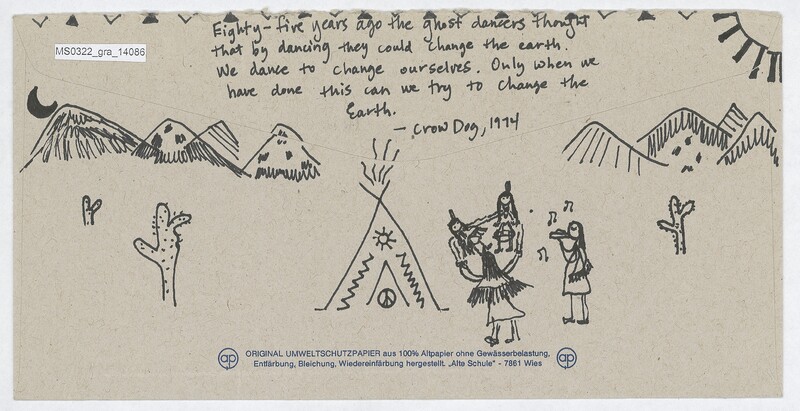 Eighty-five years ago the ghost dancers thought
MS0322_gra_14086
that by dancing they could change the earth.
We dance to change ourselves. Only when we
have done this can we try to change the
Earth.
— Crow Dog, 1974
ap ORIGINAL UMWELTSCHUTZPAPIER aus 100% Altpapier ohne Gewässerbelastung, ap
Entfärbung, Bleichung, Wiedereinfärbung hergestellt. „Alte Schule" - 7861 Wies